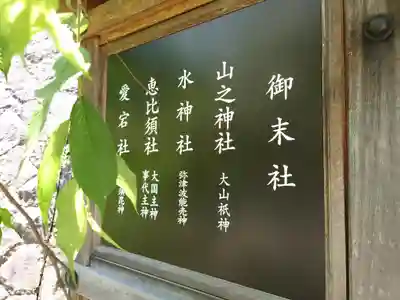 御末社
山之神社 大山祇神
水神社 弥津波能売神
恵比須社 大国主神
事代主神
愛宕社